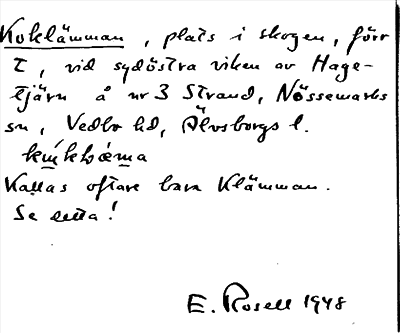 Koklämman, plats i skogen, förr
t, vid sydöstra viken av Hage-
tjärn å nr 3 Strand, Nössemarks
sn, Vedbo hd, Älvsborgs l.
Kallas oftare bara Klämman.
Se detta!
E. Rosell 1948